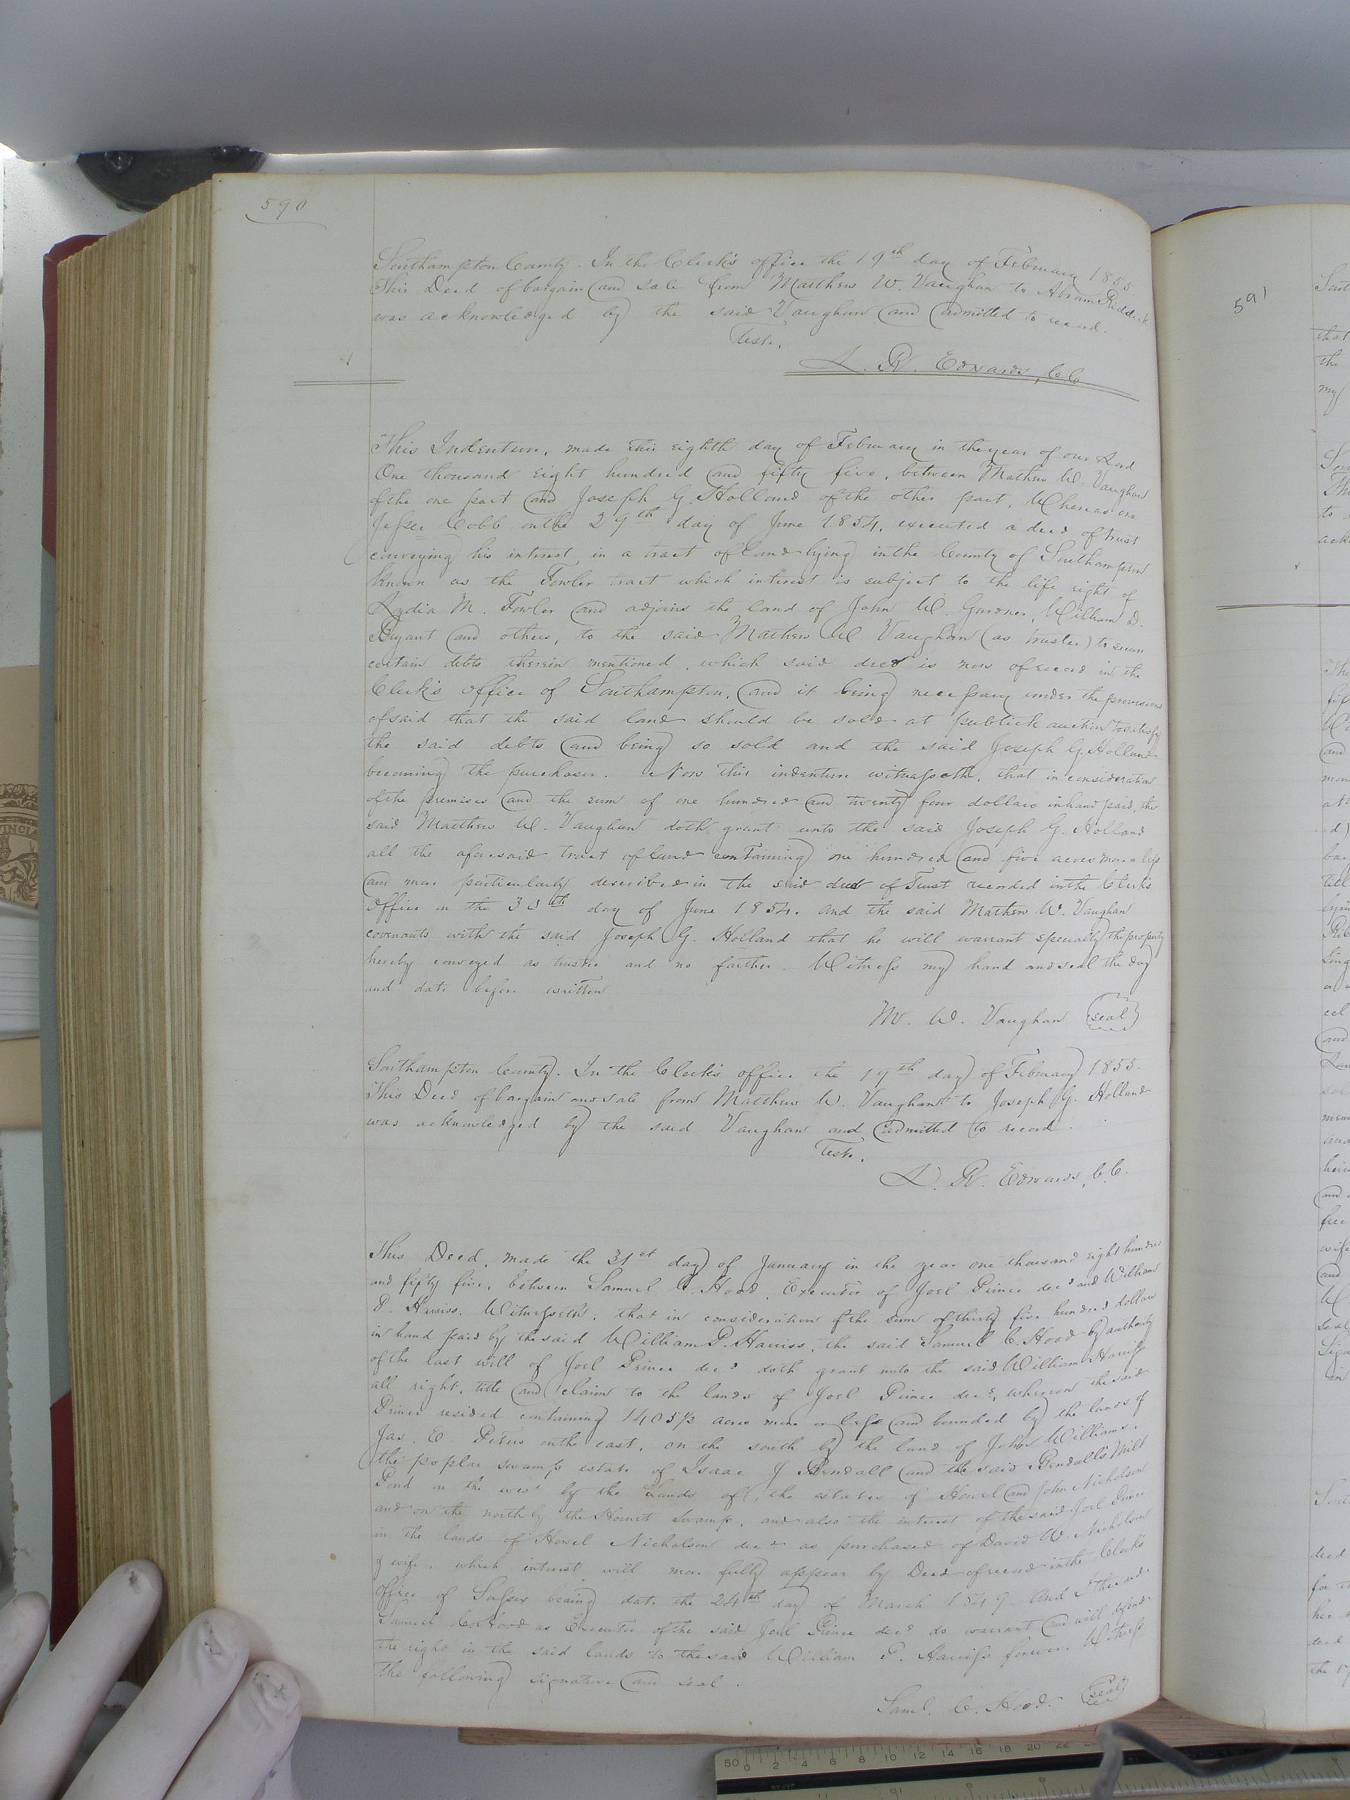 590
Southampton County. In the Clerk's office the 19th day of February 1855
This Deed of bargain and sale from Matthew W. Vaughan to Abram Riddick
was acknowledged by the said Vaughan and admitted to record.
Teste,
L. R. Edwards, C C
This Indenture, made this eighth day of February in the year of our Lord
One thousand eight hundred and fifty five, between Mathew W. Vaughan
of the one part and Joseph G. Holland of the other part, Whereas one
Jesse Cobb on the 29th day of June 1854, executed a deed of trust
conveying his interest in a tract of land lying in the County of Southampton
known as the Fowler tract which interest is subject to the life right of
Lydia M. Fowler and adjoins the land of John W. Gardner, William D.
Bryant and others, to the said Mathew W Vaughan (as trustee) to secure
certain debts therein mentioned, which said deed is now of record in the
Clerk's office of Southampton, and it being necessary under the provisions
of said that the said land should be sold at publick auction to satisfy
the said debts and being so sold and the said Joseph G. Holland
becoming the purchaser. Now this indenture witnesseth, that in consideration
of the premises and the sum of one hundred and twenty four dollars in hand paid, the
said Matthew W. Vaughan doth grant unto the said Joseph G. Holland
all the aforesaid tract of land containing one hundred and five acres more or less
and more particularly described in the said deed of Trust recorded in the Clerk's
office on the 30th day of June 1854. and the said Mathew W. Vaughan
covenants with the said Joseph G. Holland that he will warrant specially the property
hereby conveyed as trustee and no farther. Witness my hand and seal the day
and date before written
M. W. Vaughan (seal)
Southampton County. In the Clerk's office the 19th day of February 1855.
This Deed of bargain and sale from Matthew W. Vaughan to Joseph G. Holland
was acknowledged by the said Vaughan and admitted to record.
Teste.
L. R. Edwards, C. C.
This Deed, made the 31st day of January in the year one thousand eight hundred
and fifty five, between Samuel C. Hood, Executor of Joel Prince decd and William
P. Harriss. Witnesseth: that in consideration of the sum of thirty five hundred dollars
in hand paid by the said William P. Harriss, the said Samuel C. Hood by authority
of the last will of Joel Prince decd doth grant unto the said William Harriss
all right, title and claim to the lands of Joel Prince decd, whereon the said
Prince resided containing 1405½ acres more or less and bounded by the lands of
Jas. D. Peters on the east, on the south by the land of John Williams.
the poplar swamp estate of Isaac J and the said Mill
Pond on the west by the lands of the estates of Howel and John Nicholson
and on the north by the Hornet Swamp, and also the interest of the said Joel Prince
in the lands of Howel Nicholson decd as purchased of David W. Nicholson
& wife, which interest will more fully appear by Deed of record in the Clerk's
office of Sussex bearing date the 24th day of March 1849. And I the said
Samuel C. Hood as Executor of the said Joel Prince decd do warrant and will defend
the right in the said lands to the said William P. Harriss forever. Witness
the following signature and seal.
Saml. C. Hood. (seal)
591